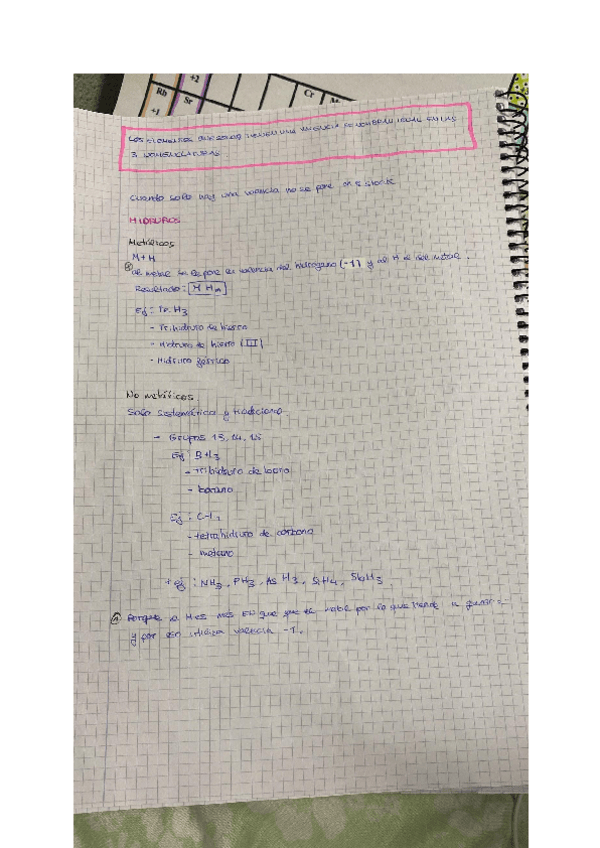 +2
Rb
Sr
Cr
+1
LOS ELEMENTOS QUE SOLO TIENEN UNA VALENCIA SE NOMBRAN IGUAL EN LAS
3 NOMENCLATURAS
Cuando solo hay una valencia no se pone en s. stock
HIDRUROS
Metálicos
M + H
al metal se le pone la valencia del hidrógeno (-1) y al H la del metal.
Resultado: M Hn
Ej: Fe H3
- Trihidruro de hierro
- Hidruro de hierro (III)
- Hidruro férrico
No metálicos
Solo sistemática y tradicional
- Grupos 13, 14, 15
Ej: BH3
- trihidruro de boro
- borano
Ej: CH4
- tetrahidruro de carbono
- metano
+ ej: NH3, PH3, AsH3, SiH4, SbH3
Porque el H es más EN que por lo que tiende a ganar e-
y por eso utiliza valencia -1.